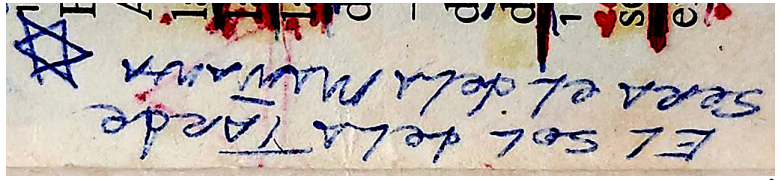 EL SOL de LA TARde
SERA el de LA MAÑANA